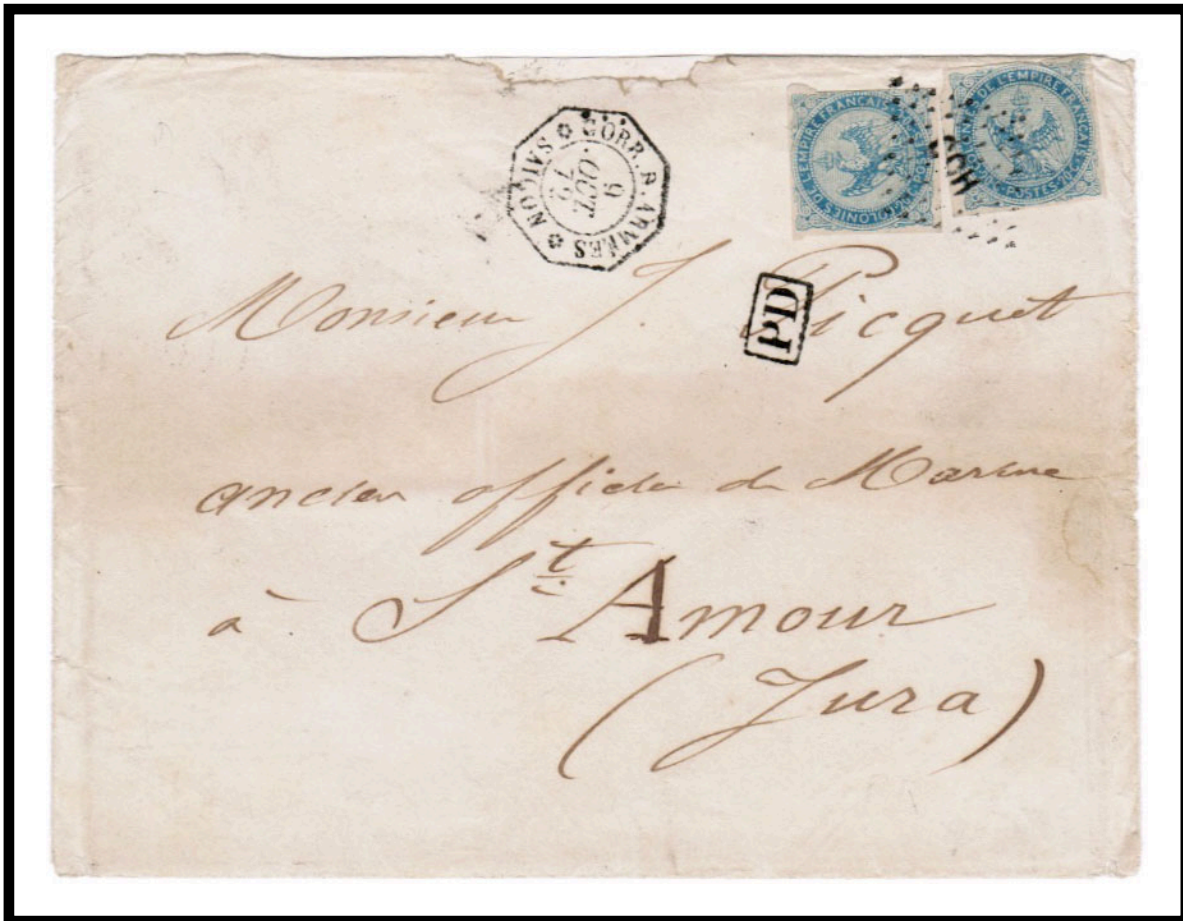 CORR. D. ARMÉES
SAIGON
9
OCT.
COLONIES DE L'EMPIRE FRANÇAIS
COLONIES DE L'EMPIRE FRANÇAIS
POSTES
PD
Monsieur J. Picquet
ancien officier de Marine
à St Amour
(Jura)